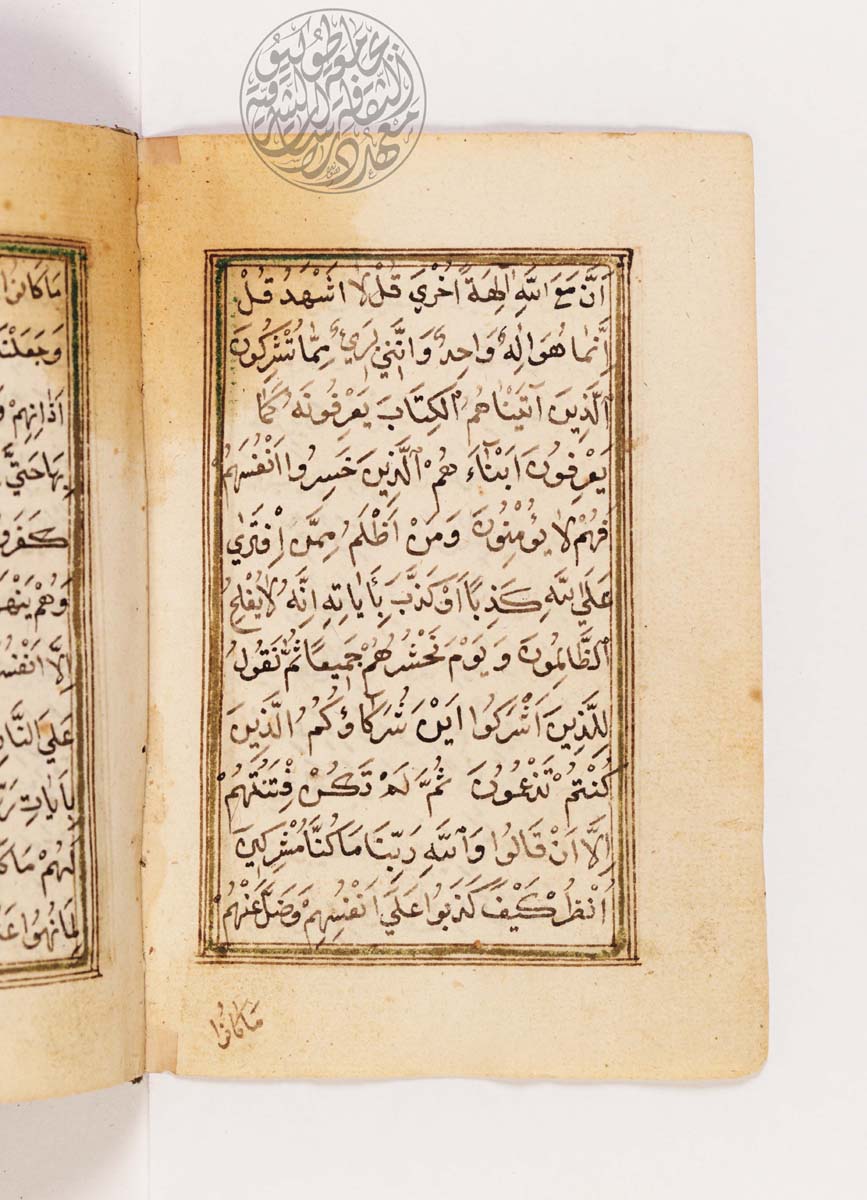 اَنَّ مَعَ اللّٰهِ اٰلِهَةً اُخْرٰي قُلْ لَا اَشْهَدُ قُلْ
اِنَّمَا هُوَ اِلٰهٌ وَاحِدٌ وَاِنَّنِي بَرِيءٌ مِمَّا تُشْرِكُونَ
اَلَّذِينَ آتَيْنَاهُمُ الْكِتَابَ يَعْرِفُونَهُ كَمَا
يَعْرِفُونَ اَبْنَآءَ هُمْ اَلَّذِينَ خَسِرُوا اَنْفُسَهُمْ
فَهُمْ لَا يُؤْمِنُونَ وَمَنْ اَظْلَمُ مِمَّنْ اِفْتَرٰي
عَلَي اللّٰهِ كَذِبًا اَوْ كَذَّبَ بِأَيَاتِهِ اِنَّهُ لَا يُفْلِحُ
الظَّالِمُونَ وَيَوْمَ نَحْشُرُهُمْ جَمِيعًا ثُمَّ نَقُولُ
لِلَّذِينَ اَشْرَكُوا اَيْنَ شُرَكَاؤُكُمُ الَّذِينَ
كُنْتُمْ تَزْعُونَ ثُمَّ لَمْ تَكُنْ فِتْنَتُهُمْ
اِلَّا اَنْ قَالُوا وَاللّٰهِ رَبِّنَا مَا كُنَّا مُشْرِكِينَ
اُنْظُرْ كَيْفَ كَذَبُوا عَلَي اَنْفُسِهِمْ وَضَلَّ عَنْهُمْ
مَا كَانُوا
مَا كَانُوا
وَجَعَلْنَا
اَذَانِهِمْ
بِهَا حَتَّي
كَفَرُوا
وَهُمْ يَنْهَ
اِلَّا اَنْفُسَ
عَلَي النَّارِ
بِاٰيَاتِ رَبِّ
لَهُمْ مَا كَا
لِمَا نُهُوا عَ